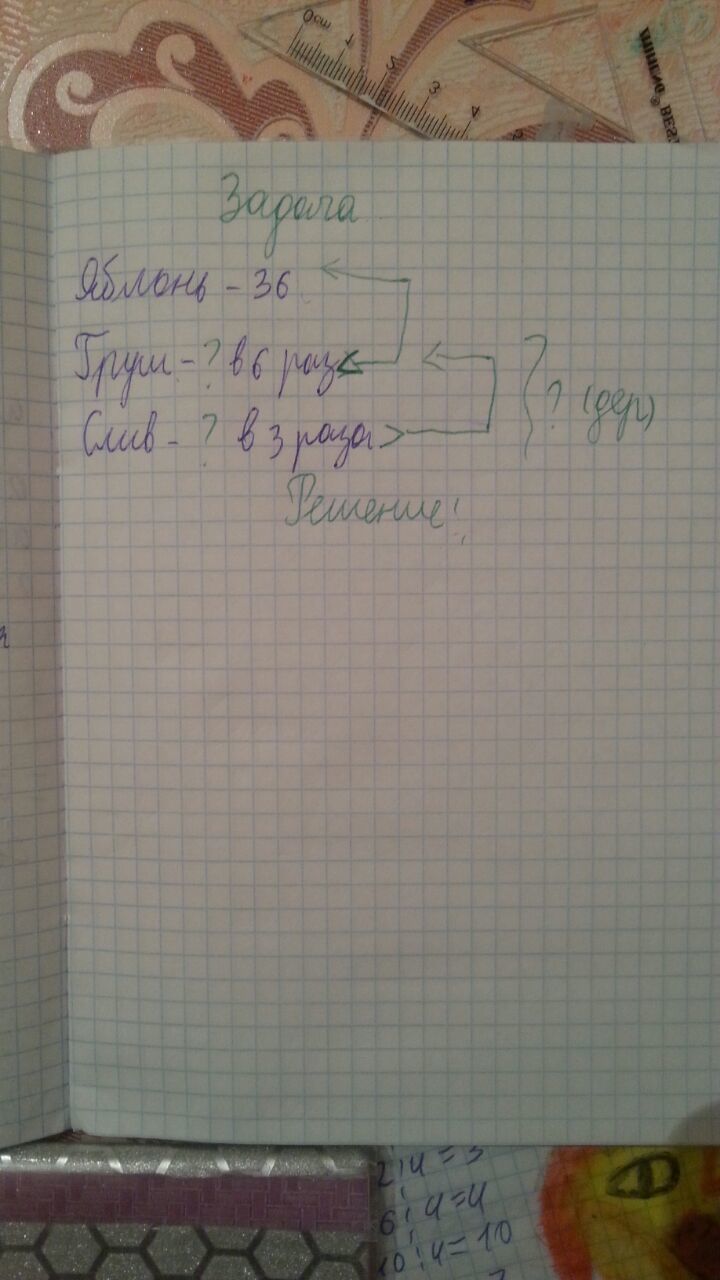 0см 1 2 3 4 5
Задача
Яблонь - 36
Груш - ? в 6 раз <
Слив - ? в 3 раза >
? (дер)
Решение:
: 4 = 3
6 : 4 = 4
0 : 4 = 10